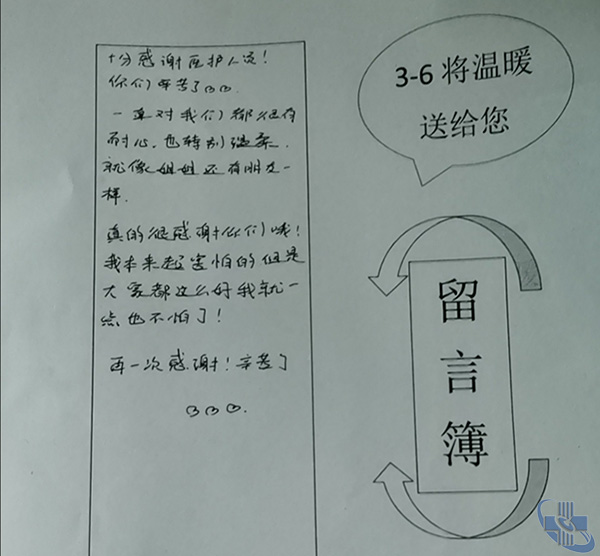 十分感谢医护人员！
你们辛苦了
一直对我们都很有
耐心，也特别温柔．
就像姐姐还有朋友一
样．
真的很感谢你们哦！
我本来超害怕的但是
大家都这么好我就一
点也不怕了！
再一次感谢！辛苦了
3-6 将温暖
送给您
留
言
簿